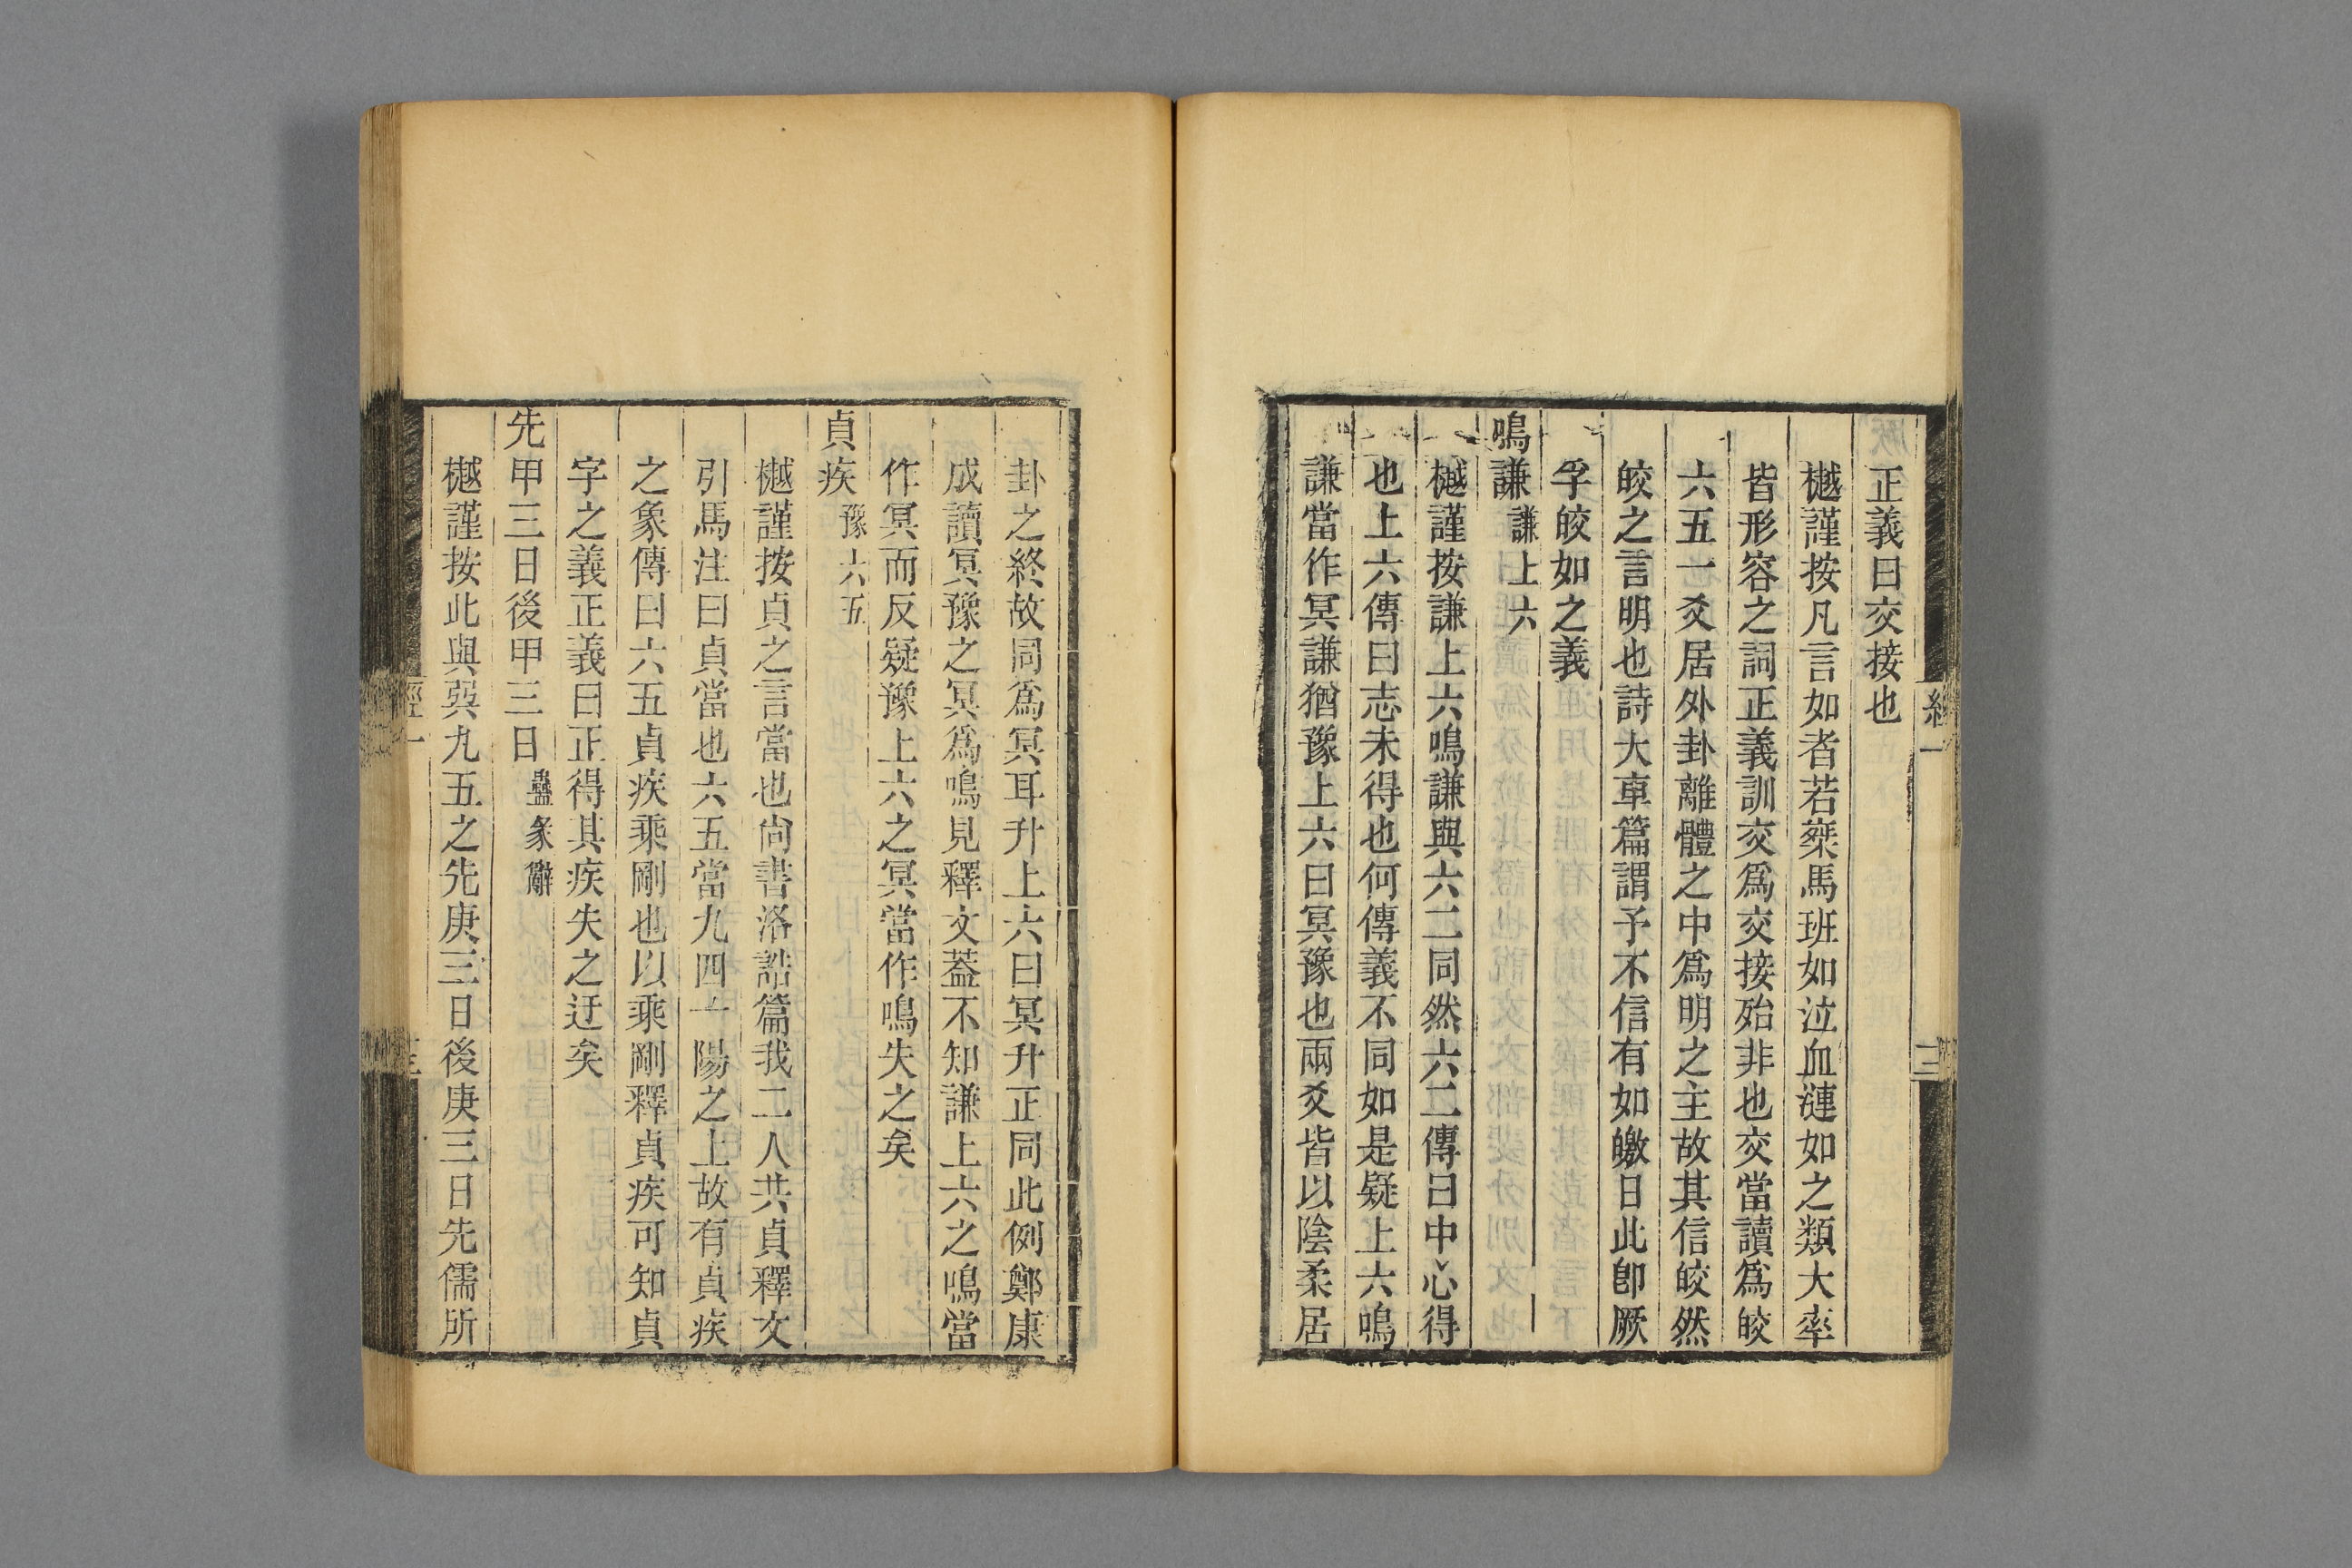 正義曰交接也
樾謹按凡言如者若椉馬班如泣血漣如之類大率
皆形容之詞正義訓交爲交接殆非也交當讀爲皎
六五一爻居外卦離體之中爲明之主故其信皎然
皎之言明也詩大車篇謂予不信有如皦日此卽厥
孚皎如之義
鳴謙 謙上六
樾謹按謙上六鳴謙與六二同然六二傳曰中心得
也上六傳曰志未得也何傳義不同如是疑上六鳴
謙當作冥謙猶豫上六曰冥豫也兩爻皆以陰柔居
卦之終故同爲冥耳升上六曰冥升正同此例鄭康
成讀冥豫之冥爲鳴見釋文葢不知謙上六之鳴當
作冥而反疑豫上六之冥當作鳴失之矣
貞疾 豫六五
樾謹按貞之言當也尙書洛誥篇我二人共貞釋文
引馬注曰貞當也六五當九四一陽之上故有貞疾
之象傳曰六五貞疾乘剛也以乘剛釋貞疾可知貞
字之義正義曰正得其疾失之迂矣
先甲三日後甲三日 蠱彖辭
樾謹按此與巽九五之先庚三日後庚三日先儒所